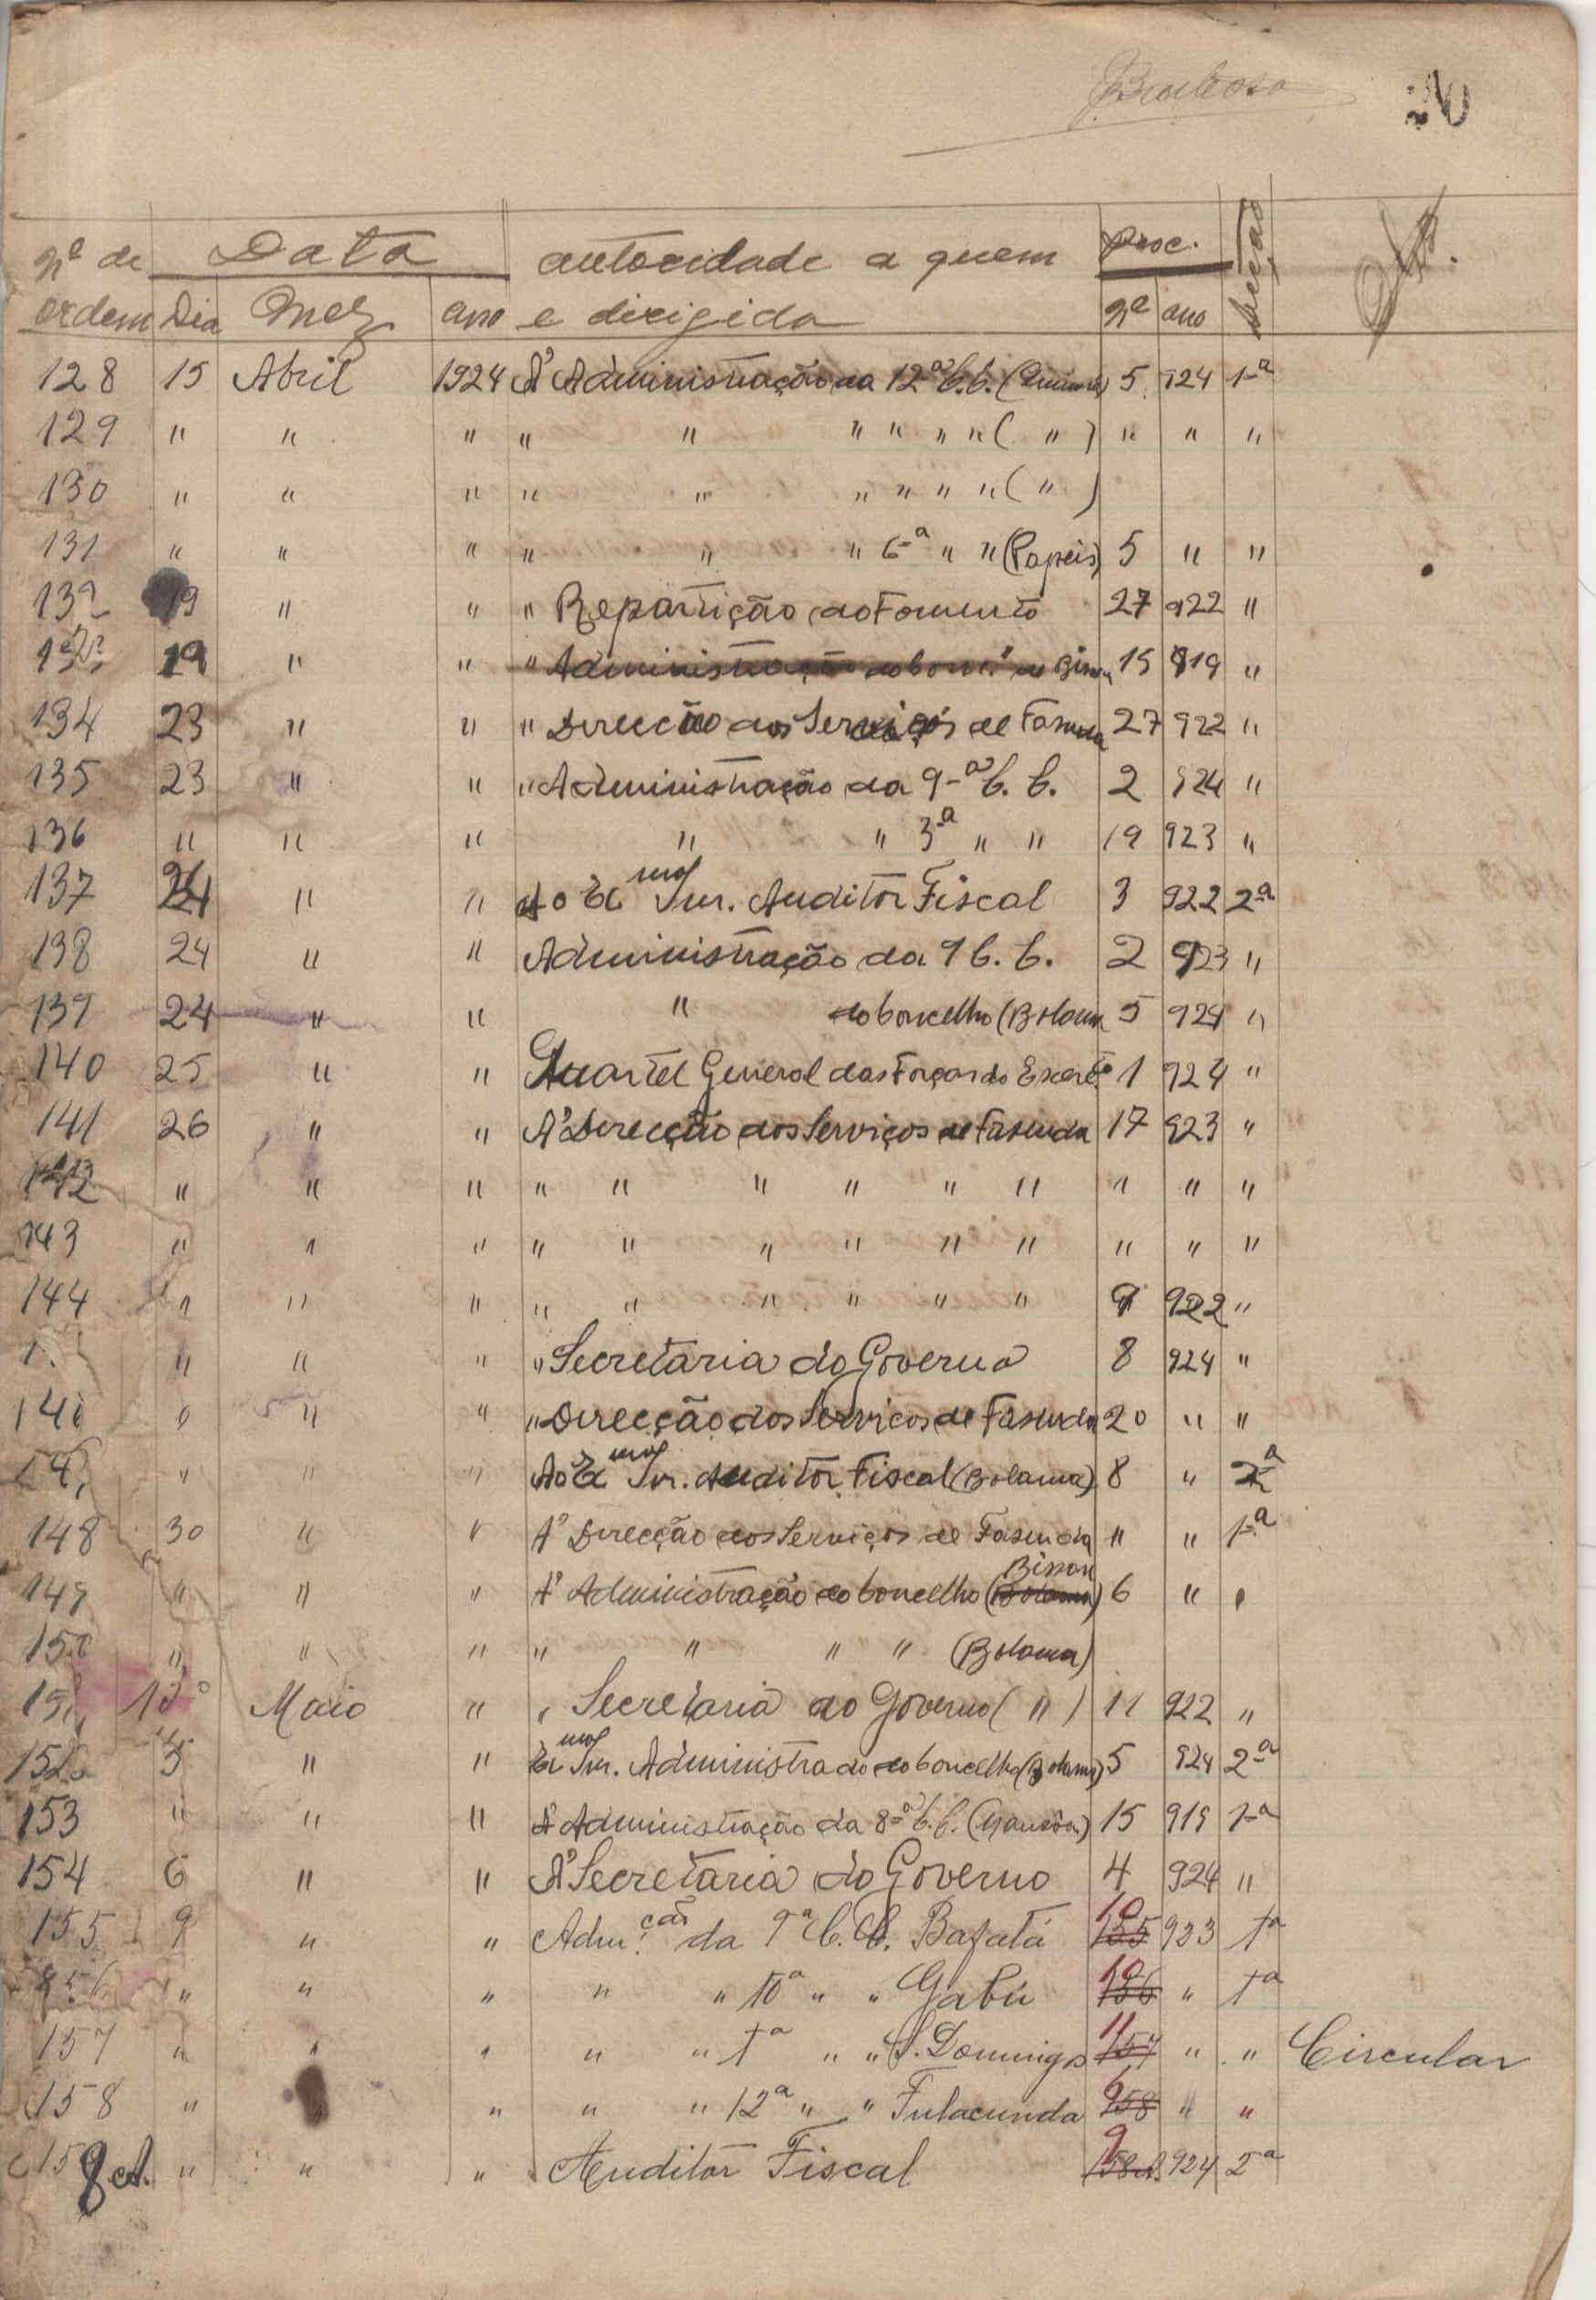 Barbosa 20
Nº de Data autoridade a quem Proc. Secção Obs.
ordem Dia Mez ano e dirigida Nº ano
128 15 Abril 1924 Á Administração da 12ª C.C. 5 924 1ª
129 " " " " " " " " " ( " ) " " "
130 " " " " " " " " " ( " )
131 " " " " " " 6ª " " (Papeis) 5 " "
132 19 " " " Repartição do Fomento 27 922 "
133 19 " " " Administração do Conc.º de Bissau 15 919 "
134 23 " " " Direcção dos Serviços de Fasenda 27 922 "
135 23 " " " Administração da 9ª C. C. 2 924 "
136 " " " " " 3ª " " 19 923 "
137 24 " " Ao Exmº Snr. Auditor Fiscal 3 922 2ª
138 24 " " Administração da 9 C. C. 2 923 "
139 24 " " " do Concelho (Bolama 5 924 "
140 25 " " Quartel General das Forças do Exercº 1 924 "
141 26 " " Á Direcção dos Serviços de Fasenda 17 923 "
142 " " " " " " " " " " " "
143 " " " " " " " " " " " "
144 " " " " " " " " " 9 922 "
" " " " Secretaria do Governo 8 924 "
" " " Direcção dos Serviços de Fasenda 20 " "
" " " Ao Exmº Snr. Auditor Fiscal (Bolama) 8 " 2ª
148 30 " " Á Direcção dos Serviços de Fasenda " " 1ª
149 " " " Á Administração do Concelho (Bolama) Bissau 6 " "
150 " " " " " " " (Bolama)
151 Maio " " Secretaria do Governo ( " ) 11 922 "
152 5 " " Exmº Snr. Administrado do Concelho (Bolama) 5 924 2ª
153 " " " Á Administração da 8ª C.C. (Mansôa) 15 919 1ª
154 6 " " Á Secretaria do Governo 4 924 "
155 9 " " Adm.ção da 9ª C. C. Bafatá 155 10 923 1ª
156 " " " " " 10ª " " Gabú 156 10 " 1ª
157 " " " " " 1ª " " S. Domingos 157 11 " " Circular
158 " " " " " 12ª " " Fulacunda 158 6 " "
158 A. " " " Auditor Fiscal 158 A. 9 924 2ª